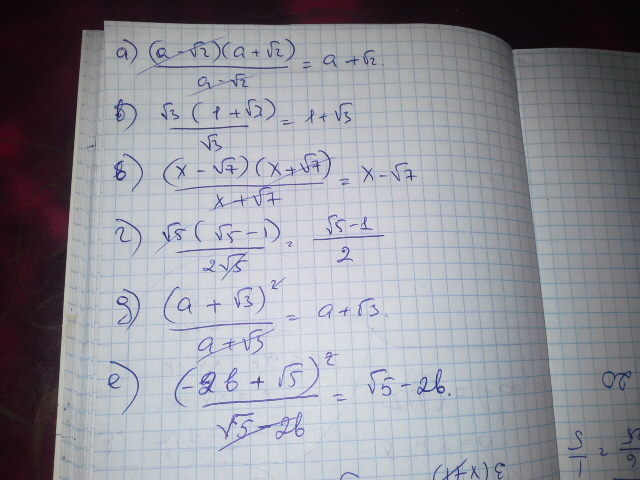 а) (a-√2)(a+√2) / a-√2 = a+√2.
б) √3(1+√3) / √3 = 1+√3
в) (x-√7)(x+√7) / x+√7 = x-√7
г) √5(√5-1) / 2√5 = √5-1 / 2
д) (a+√3)² / a+√3 = a+√3.
е) (-2b+√5)² / √5-2b = √5-2b.